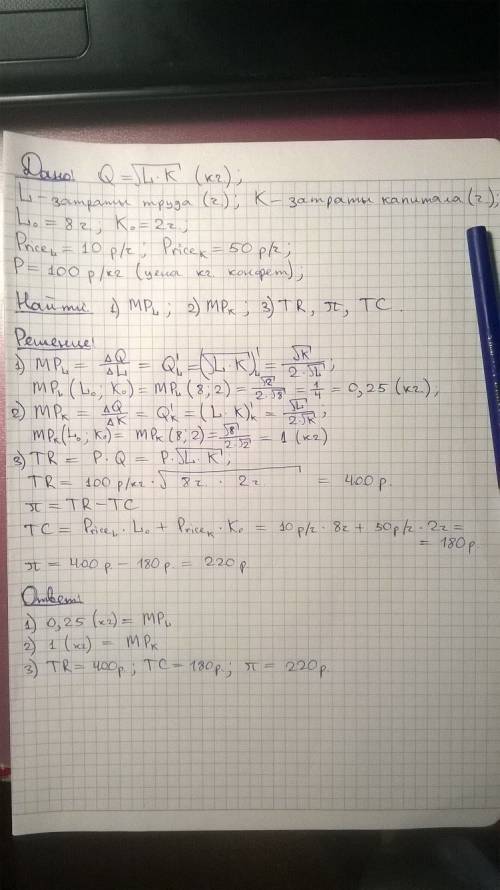 Дано: Q = √L·K (кг);
L - затраты труда (ч); K - затраты капитала (ч);
L₀ = 8ч; K₀ = 2ч;
Price_L = 10 р/ч; Price_K = 50 р/ч;
P = 100 р/кг (цена кг конфет);
Найти: 1) MP_L; 2) MP_K; 3) TR, π, TC.
Решение:
1) MP_L = ΔQ/ΔL = Q'_L = (√L·K)'_L = √K/(2·√L);
MP_L (L₀; K₀) = MP_L (8; 2) = √2/(2·√8) = 1/4 = 0,25 (кг);
2) MP_K = ΔQ/ΔK = Q'_K = (L·K)'_K = √L/(2√K);
MP_K (L₀; K₀) = MP_K (8; 2) = √8/(2√2) = 1 (кг)
3) TR = P·Q = P·√L·K;
TR = 100 р/кг · √8ч · 2ч = 400р.
π = TR - TC
TC = Price_L · L₀ + Price_K · K₀ = 10р/ч · 8ч + 50р/ч · 2ч =
= 180р.
π = 400р - 180р = 220р.
Ответ:
1) 0,25 (кг) = MP_L
2) 1 (кг) = MP_K
3) TR = 400р; TC = 180р; π = 220р.